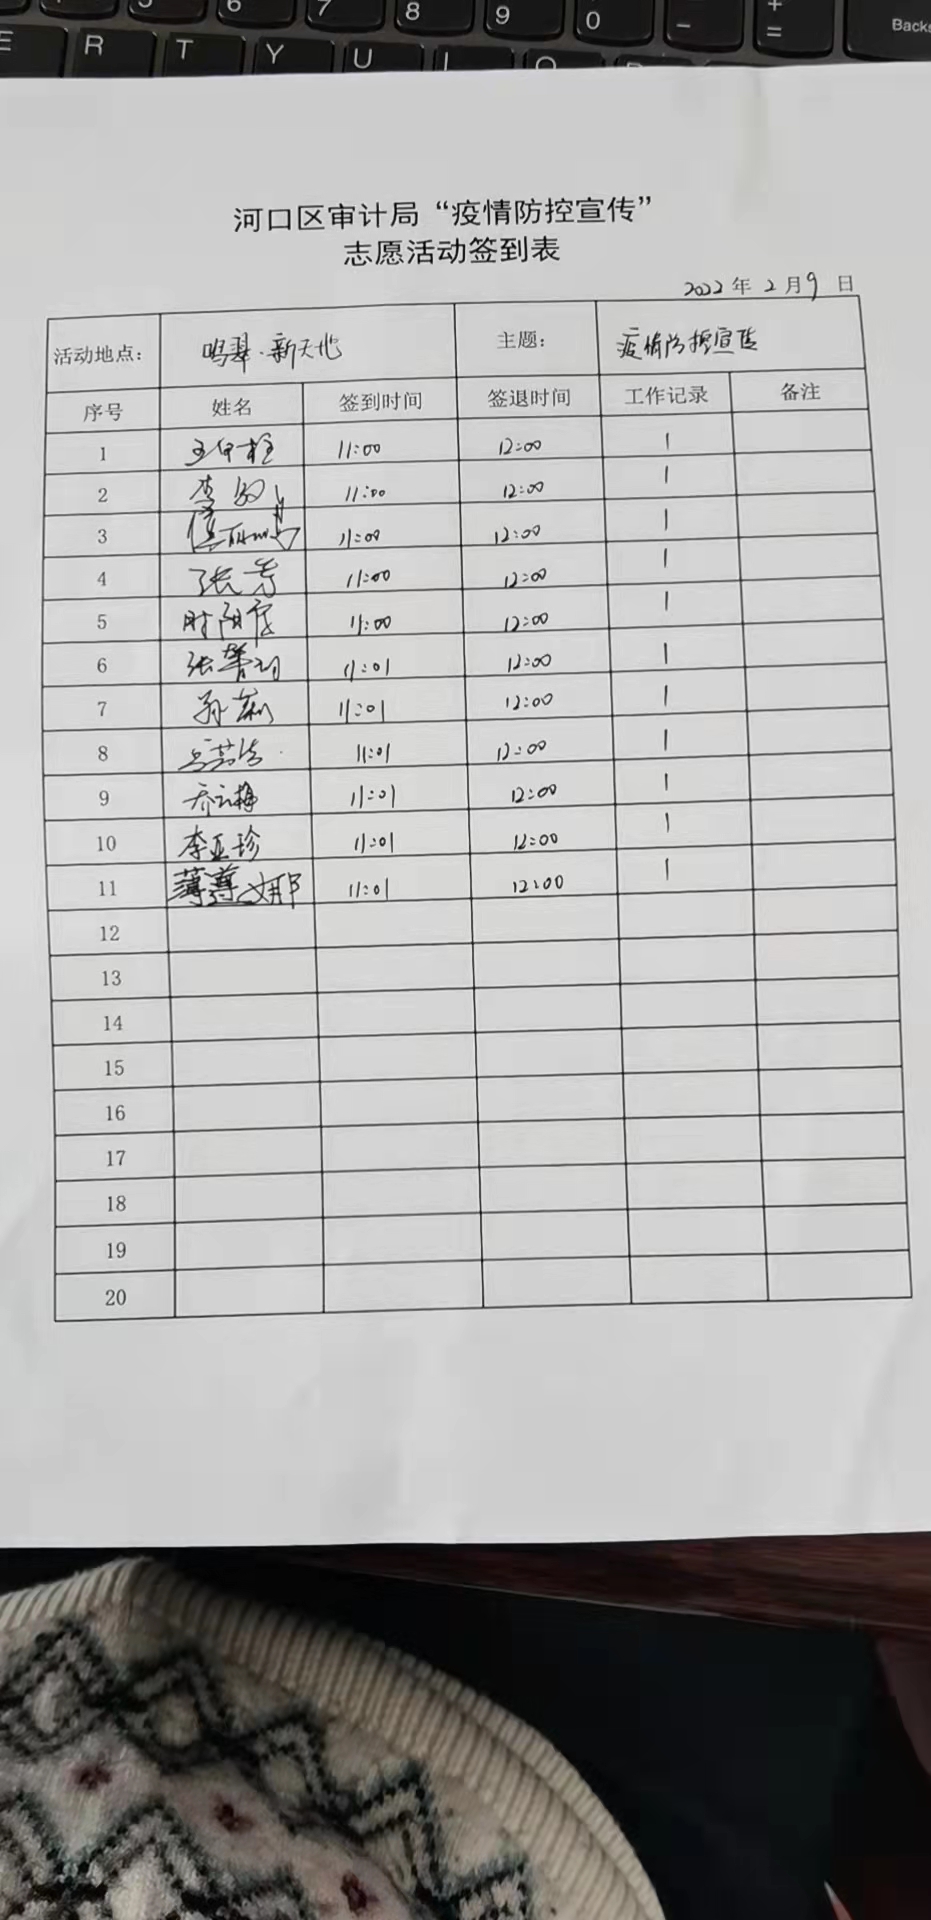 6 7 8 9 0 - + =
Backs
E R T Y U I O P
河口区审计局“疫情防控宣传”
志愿活动签到表
2022年2月9日
活动地点: 鸣翠·新天地 主题: 疫情防控宣传
序号 姓名 签到时间 签退时间 工作记录 备注
1 11:00 12:00 1
2 11:00 12:00 1
3 11:00 12:00 1
4 张芳 11:00 12:00 1
5 11:00 12:00 1
6 11:01 12:00 1
7 11:01 12:00 1
8 11:01 12:00 1
9 乔云梅 11:01 12:00 1
10 李亚珍 11:01 12:00 1
11 薄尊娜 11:01 12:00 1
12
13
14
15
16
17
18
19
20